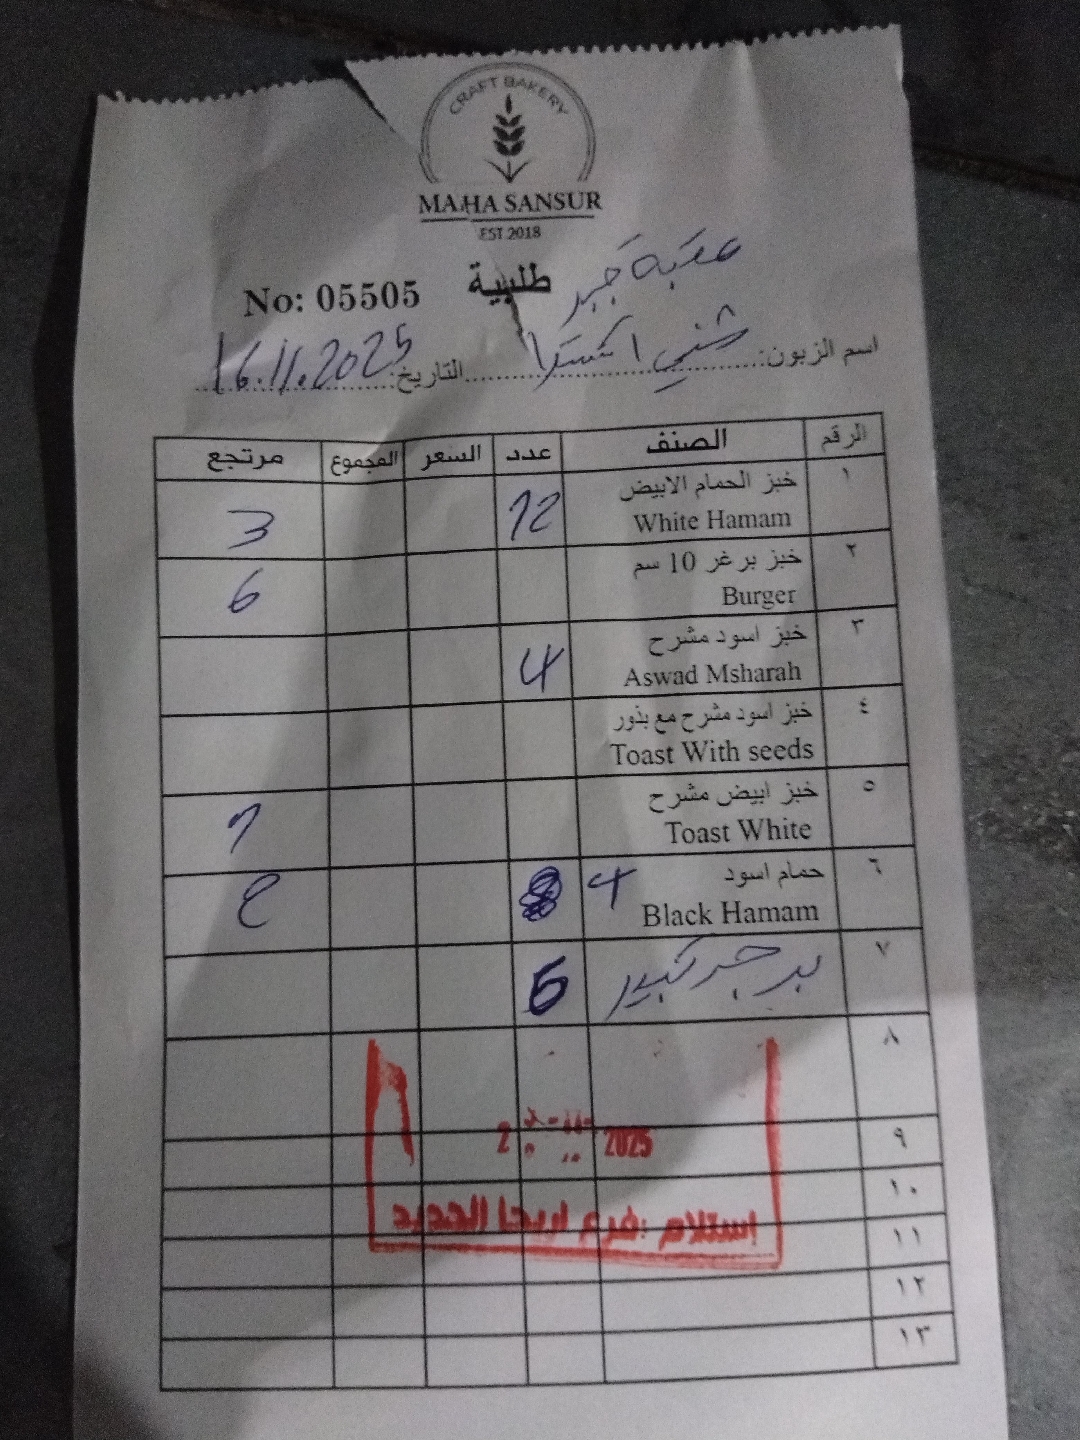 CRAFT BAKERY
MAHA SANSUR
EST 2018
عقبة جبر
No: 05505 طلبية
اسم الزبون: شني اكسترا التاريخ: 16.11.2025
الرقم الصنف عدد السعر المجموع مرتجع
١ خبز الحمام الابيض 12 3
White Hamam
٢ خبز برغر 10 سم 6
Burger
٣ خبز اسود مشرح 4
Aswad Msharah
٤ خبز اسود مشرح مع بذور
Toast With seeds
٥ خبز ابيض مشرح 1
Toast White
٦ حمام اسود 4
Black Hamam
٧ برجر كبير 5
٨
2025
٩
١٠
استلام :فرع اريحا الجديد
١١
١٢
١٣